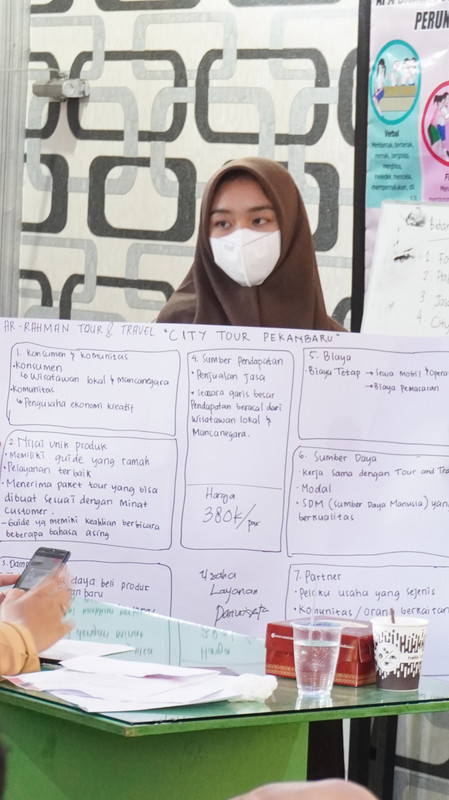 PERUN
Verbal
AR-RAHMAN TOUR & TRAVEL "CITY TOUR PEKANBARU"
1. Konsumen & komunitas
•Konsumen
↳ Wisatawan lokal & Mancanegara
•Komunitas
↳ Pengusaha ekonomi kreatif
2. Nilai unik produk
•Memiliki guide yang ramah
•Pelayanan terbaik
•Menerima paket tour yang bisa
dibuat sesuai dengan minat
customer.
-Guide yg memiki keahkan berbicara
beberapa bahasa asing
3. Dam
daya beli produk
an baru
4. Sumber Pendapatan
•Penjualan Jasa
•Secara garis besar
Pendapatan berasal dari
Wisatawan lokal &
Mancanegara.
Harga
380k/pax
Usaha
Layanan
Pariwisata
5. Biaya
•Biaya Tetap → Sewa Mobil & Opera
→ Biaya Pemasaran
6. Sumber Daya
•Kerja Sama dengan Tour and Tra
•Modal
•SDM (Sumber Daya Manusia) yan
berkualitas
7. Partner
•Pelaku usaha yang sejenis
•Komunitas/orang berkaitan